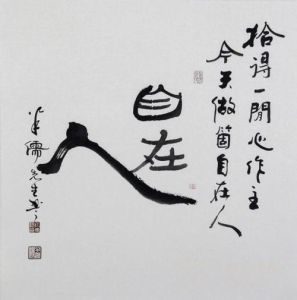 拾得一閒心作主
今天做箇自在人
自在
人
儒先生